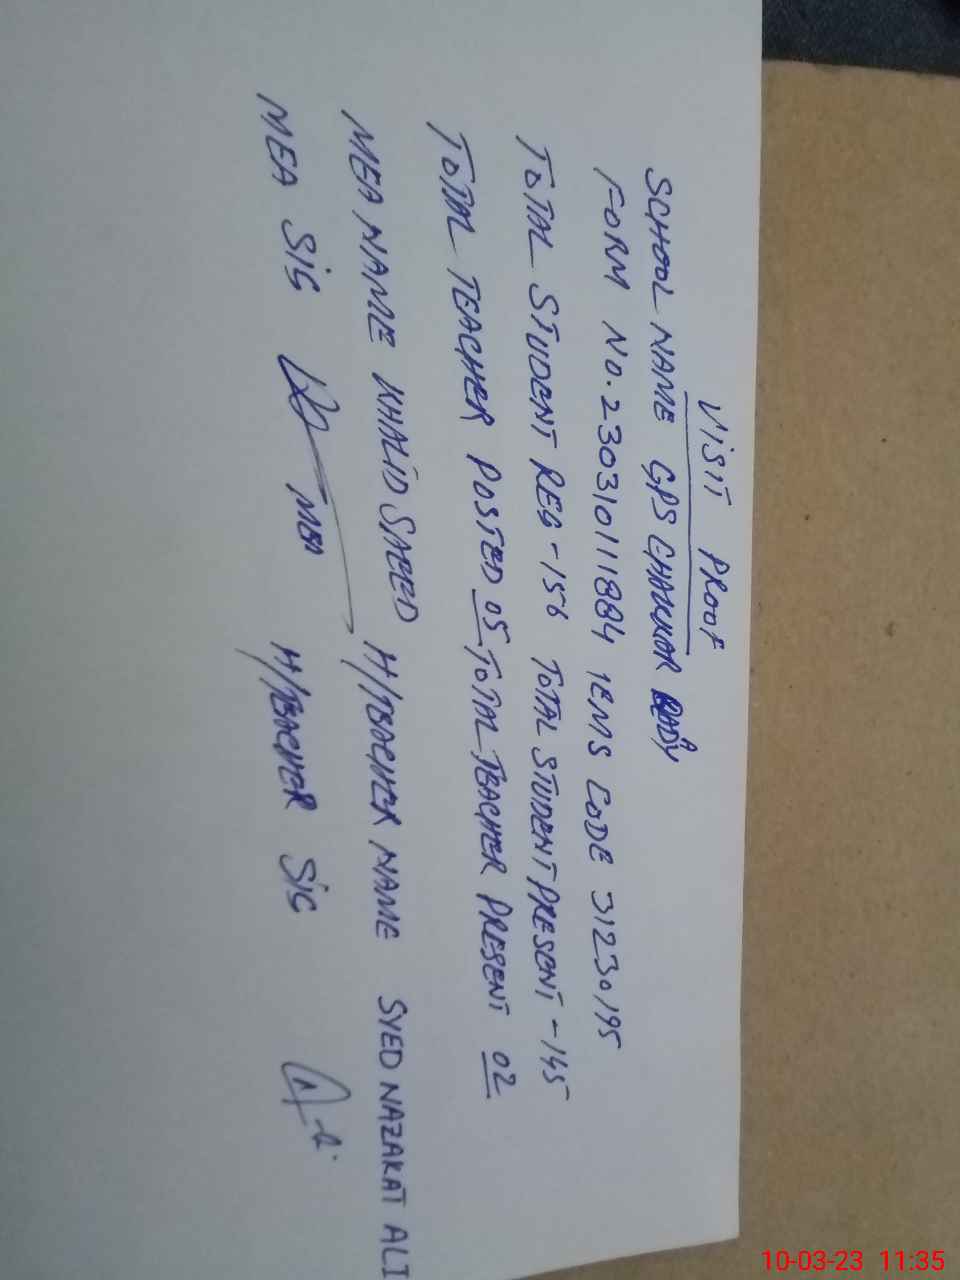 VISIT PROOF
SCHOOL NAME GPS CHAKKOR
FORM NO. 230310111884 IEMS CODE 31230195
TOTAL STUDENT REG - 156 TOTAL STUDENT PRESENT - 145
TOTAL TEACHER POSTED 05 TOTAL TEACHER PRESENT 02
MEA NAME KHALID SAEED H/TEACHER NAME SYED NAZAKAT ALI
MEA SIG MEA H/TEACHER SIG
10-03-23 11:35